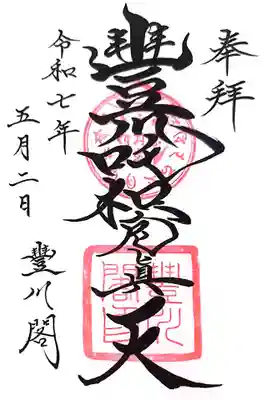 奉拝
豐川吒枳尼眞天
令和七年
五月二日
豐川閣